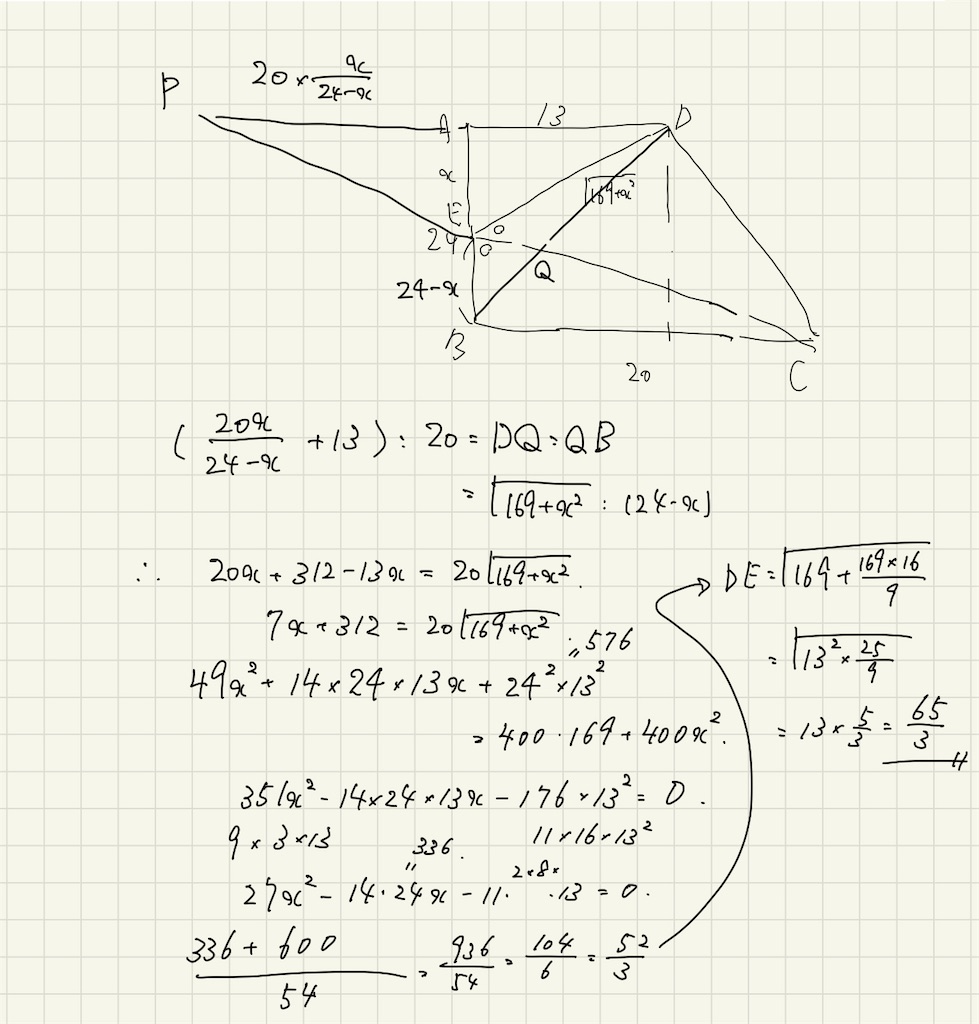 P 20 × x/(24-x)
A 13 D
x √(169+x²)
E
24 Q
24-x
B 20 C
( 20x/(24-x) + 13 ) : 20 = DQ : QB
= √(169+x²) : (24-x)
∴ 20x + 312 - 13x = 20√(169+x²).
7x + 312 = 20√(169+x²)
576
49x² + 14×24×13x + 24²×13²
= 400·169 + 400x².
351x² - 14×24×13x - 176×13² = 0.
9×3×13 336. 11×16×13²
2×8×
27x² - 14·24x - 11· ·13 = 0.
(336 + 600)/54 = 936/54 = 104/6 = 52/3
→ DE = √(169 + (169×16)/9)
= √(13² × 25/9)
= 13 × 5/3 = 65/3